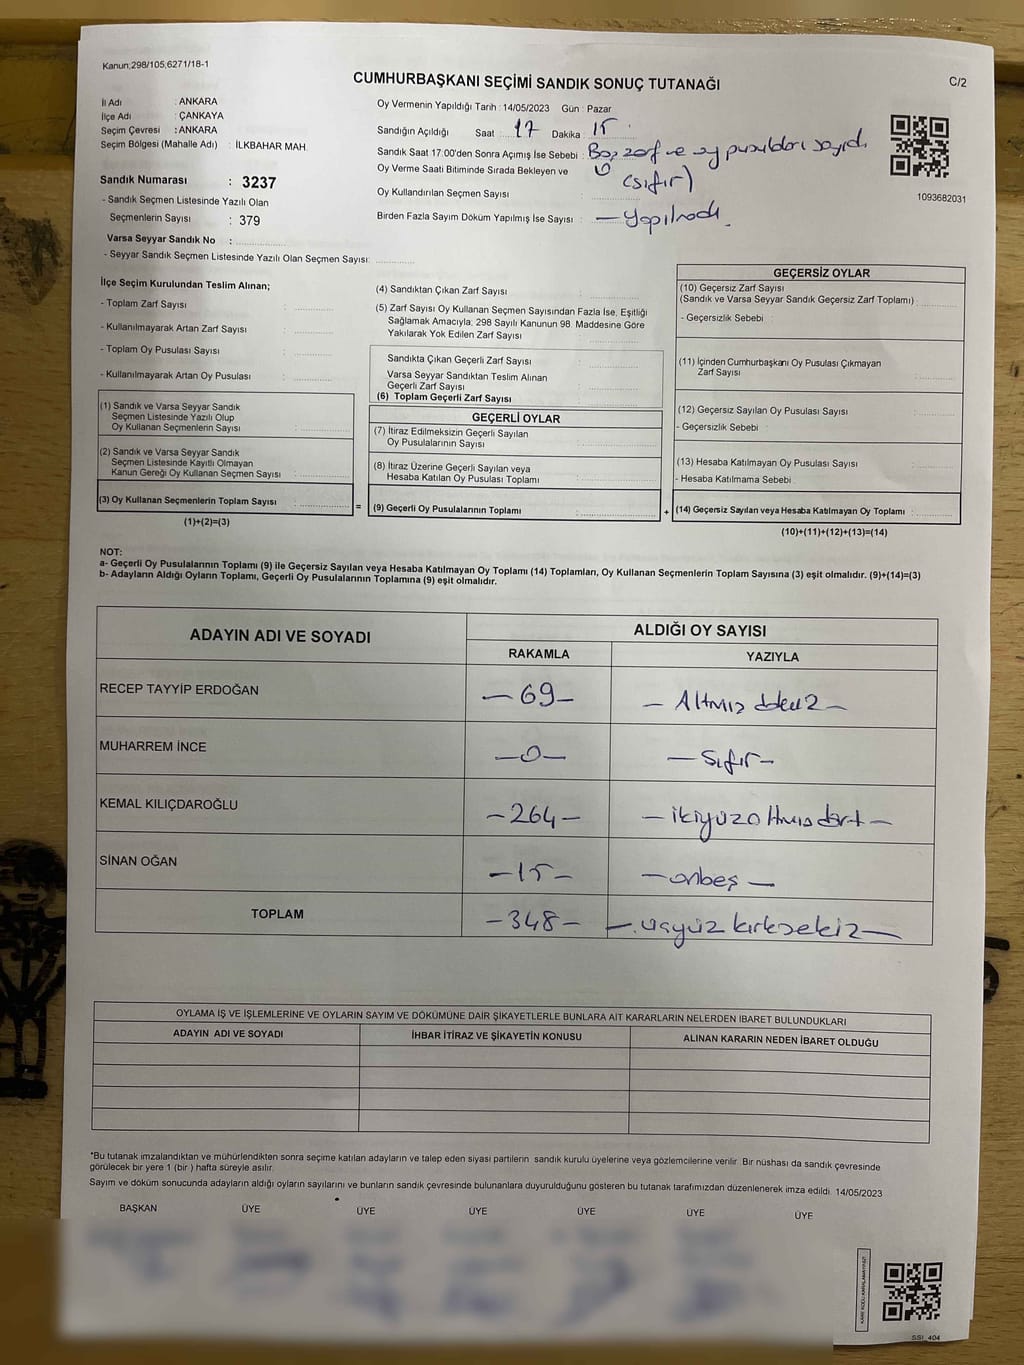 Kanun;298/105;6271/18-1
CUMHURBAŞKANI SEÇİMİ SANDIK SONUÇ TUTANAĞI
C/2
İl Adı : ANKARA
İlçe Adı : ÇANKAYA
Seçim Çevresi : ANKARA
Seçim Bölgesi (Mahalle Adı) : İLKBAHAR MAH.
Sandık Numarası : 3237
- Sandık Seçmen Listesinde Yazılı Olan
Seçmenlerin Sayısı : 379
Varsa Seyyar Sandık No :
- Seyyar Sandık Seçmen Listesinde Yazılı Olan Seçmen Sayısı:
Oy Vermenin Yapıldığı Tarih : 14/05/2023 Gün : Pazar
Sandığın Açıldığı Saat : 17 Dakika : 15
Sandık Saat 17:00'den Sonra Açımış İse Sebebi : Boş zarf ve oy pusulaları sayıdı
Oy Verme Saati Bitiminde Sırada Bekleyen ve
Oy Kullandırılan Seçmen Sayısı : 0 (sıfır)
Birden Fazla Sayım Döküm Yapılmış İse Sayısı : — yapılmadı.
1093682031
İlçe Seçim Kurulundan Teslim Alınan;
- Toplam Zarf Sayısı :
- Kullanılmayarak Artan Zarf Sayısı :
- Toplam Oy Pusulası Sayısı :
- Kullanılmayarak Artan Oy Pusulası :
(1) Sandık ve Varsa Seyyar Sandık
Seçmen Listesinde Yazılı Olup
Oy Kullanan Seçmenlerin Sayısı :
(2) Sandık ve Varsa Seyyar Sandık
Seçmen Listesinde Kayıtlı Olmayan
Kanun Gereği Oy Kullanan Seçmen Sayısı :
(3) Oy Kullanan Seçmenlerin Toplam Sayısı :
(1)+(2)=(3)
(4) Sandıktan Çıkan Zarf Sayısı :
(5) Zarf Sayısı Oy Kullanan Seçmen Sayısından Fazla İse, Eşitliği
Sağlamak Amacıyla; 298 Sayılı Kanunun 98. Maddesine Göre
Yakılarak Yok Edilen Zarf Sayısı :
Sandıkta Çıkan Geçerli Zarf Sayısı :
Varsa Seyyar Sandıktan Teslim Alınan
Geçerli Zarf Sayısı :
(6) Toplam Geçerli Zarf Sayısı :
GEÇERLİ OYLAR
(7) İtiraz Edilmeksizin Geçerli Sayılan
Oy Pusulalarının Sayısı :
(8) İtiraz Üzerine Geçerli Sayılan veya
Hesaba Katılan Oy Pusulası Toplamı :
= (9) Geçerli Oy Pusulalarının Toplamı : +
GEÇERSİZ OYLAR
(10) Geçersiz Zarf Sayısı
(Sandık ve Varsa Seyyar Sandık Geçersiz Zarf Toplamı) :
- Geçersizlik Sebebi :
(11) İçinden Cumhurbaşkanı Oy Pusulası Çıkmayan
Zarf Sayısı :
(12) Geçersiz Sayılan Oy Pusulası Sayısı :
- Geçersizlik Sebebi :
(13) Hesaba Katılmayan Oy Pusulası Sayısı :
- Hesaba Katılmama Sebebi :
(14) Geçersiz Sayılan veya Hesaba Katılmayan Oy Toplamı :
(10)+(11)+(12)+(13)=(14)
NOT:
a- Geçerli Oy Pusulalarının Toplamı (9) ile Geçersiz Sayılan veya Hesaba Katılmayan Oy Toplamı (14) Toplamları, Oy Kullanan Seçmenlerin Toplam Sayısına (3) eşit olmalıdır. (9)+(14)=(3)
b- Adayların Aldığı Oyların Toplamı, Geçerli Oy Pusulalarının Toplamına (9) eşit olmalıdır.
ADAYIN ADI VE SOYADI
ALDIĞI OY SAYISI
RAKAMLA YAZIYLA
RECEP TAYYİP ERDOĞAN — 69 — — Altmış dokuz —
MUHARREM İNCE — 0 — — Sıfır —
KEMAL KILIÇDAROĞLU — 264 — — ikiyüzaltmışdört —
SİNAN OĞAN — 15 — — onbeş —
TOPLAM — 348 — — üçyüz kırksekiz —
OYLAMA İŞ VE İŞLEMLERİNE VE OYLARIN SAYIM VE DÖKÜMÜNE DAİR ŞİKAYETLERLE BUNLARA AİT KARARLARIN NELERDEN İBARET BULUNDUKLARI
ADAYIN ADI VE SOYADI İHBAR İTİRAZ VE ŞİKAYETİN KONUSU ALINAN KARARIN NEDEN İBARET OLDUĞU
*Bu tutanak imzalandıktan ve mühürlendikten sonra seçime katılan adayların ve talep eden siyasi partilerin sandık kurulu üyelerine veya gözlemcilerine verilir. Bir nüshası da sandık çevresinde
görülecek bir yere 1 (bir ) hafta süreyle asılır.
Sayım ve döküm sonucunda adayların aldığı oyların sayılarını ve bunların sandık çevresinde bulunanlara duyurulduğunu gösteren bu tutanak tarafımızdan düzenlenerek imza edildi. 14/05/2023
BAŞKAN ÜYE ÜYE ÜYE ÜYE ÜYE ÜYE
SSI_404